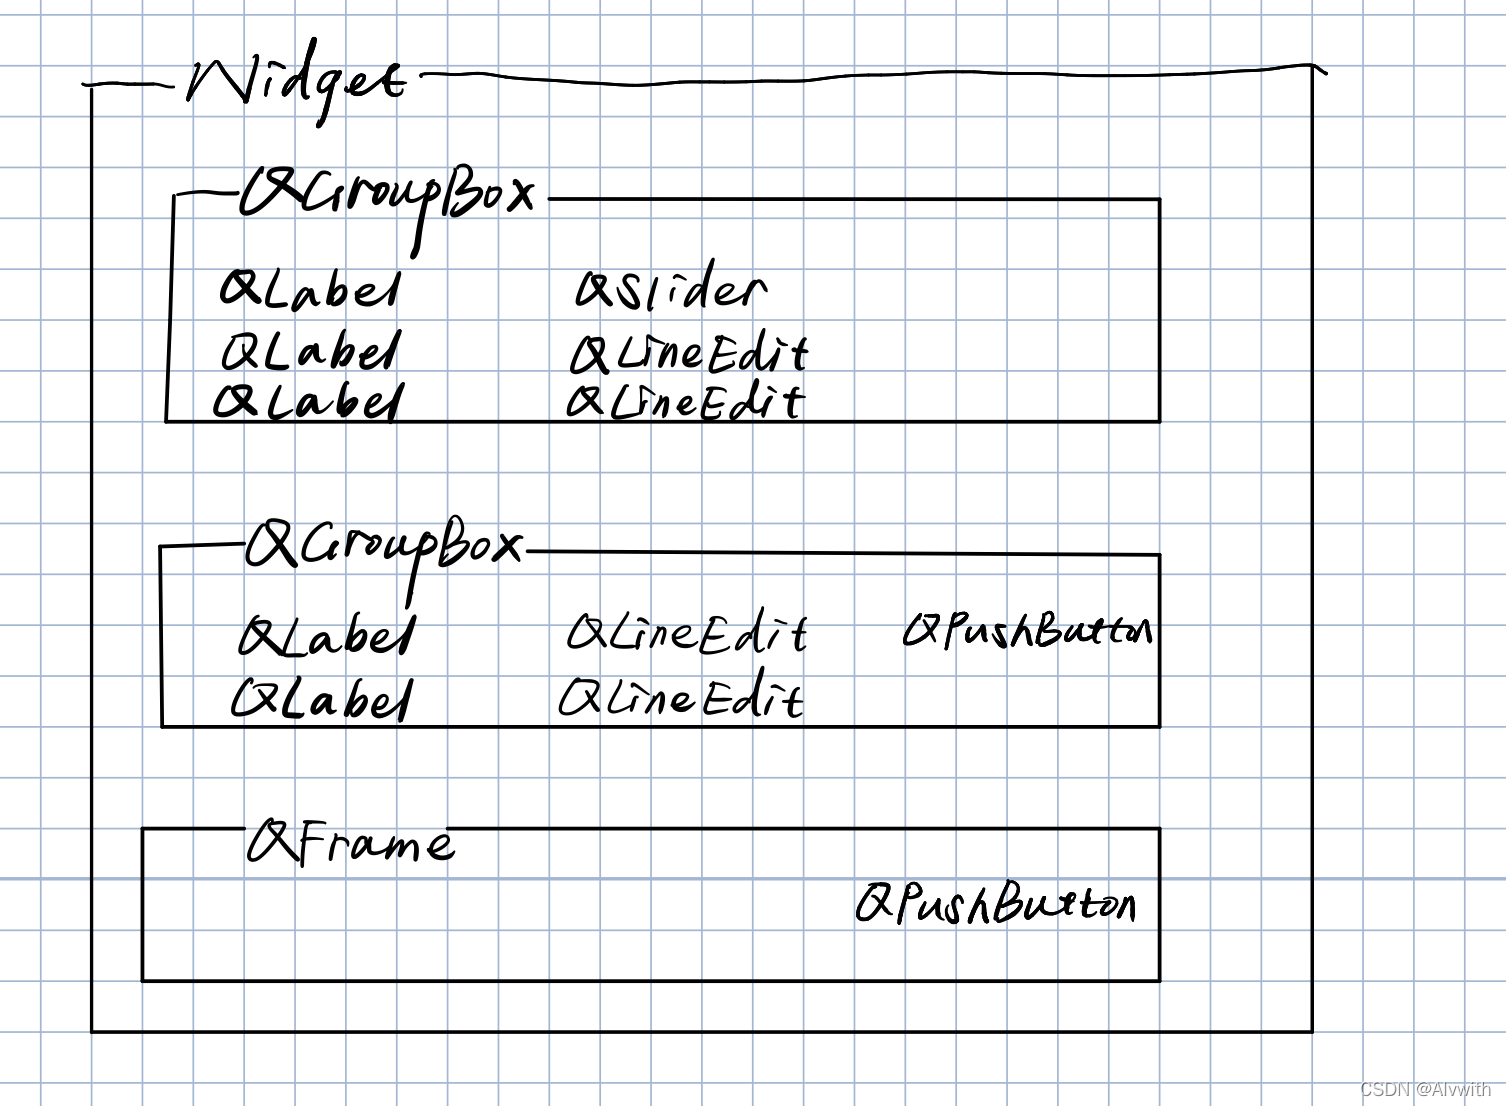 Widget
QGroupBox
QLabel QSlider
QLabel QLineEdit
QLabel QLineEdit
QGroupBox
QLabel QLineEdit QPushButton
QLabel QLineEdit
QFrame
QPushButton
CSDN @Alvwith